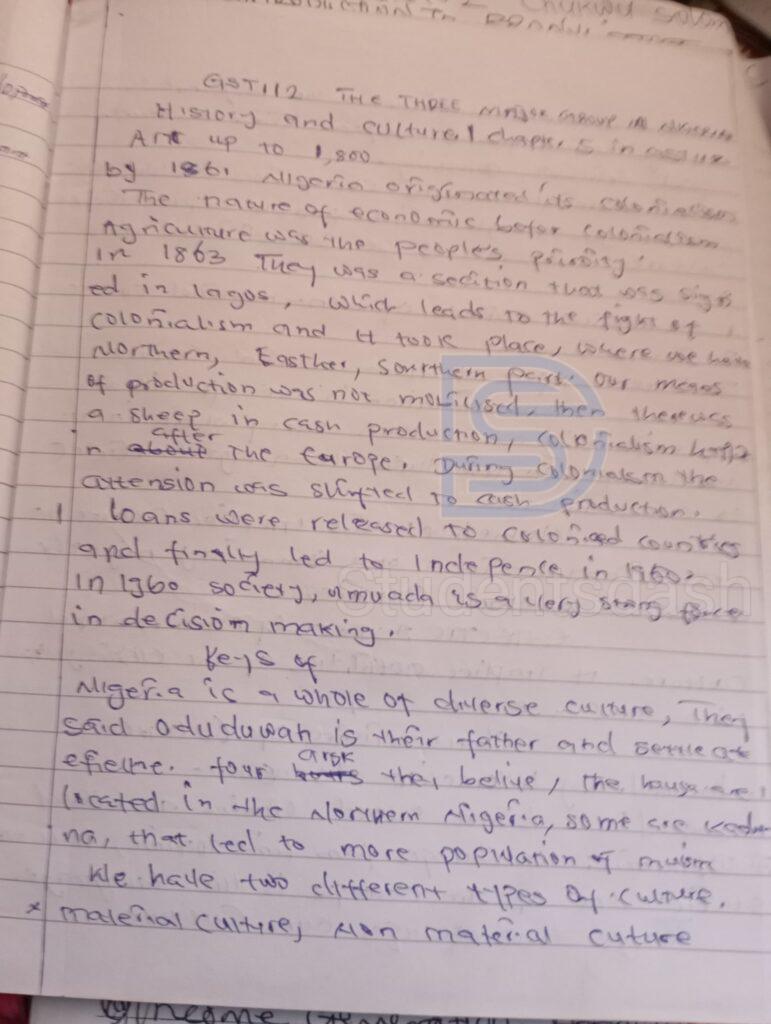 GST112 THE THREE major in
History and cultural chapter 5 in
Art up to 1,800
by 1861 Nigeria originated its colonialism
The nature of economic befor colonialism
Agriculture was the people's priority.
in 1863 They was a secition that was sign
ed in lagos, which leads to the fight of
colonialism and it took place, where we have
Northern, Easther, Sourthern part. Our means
of production was not mobilised, then there was
a sheep in cash production, colonialism
n about after The Europe. During colonialsm the
attension was shifted to cash production.
1 loans were released to colonied countries
and finally led to Indepence in 1960.
in 1960 society, umuada is a very strong force
in decision making.
Keys of
Nigeria is a whole of diverse culture, They
said oduduwah is their father and settle at
. four arsk the, belive, the hausa are
located in the Northern Nigeria, some are kadu
na, that led to more population of
We have two different types of culture.
x material culture, Non material cuture
Studentsdash